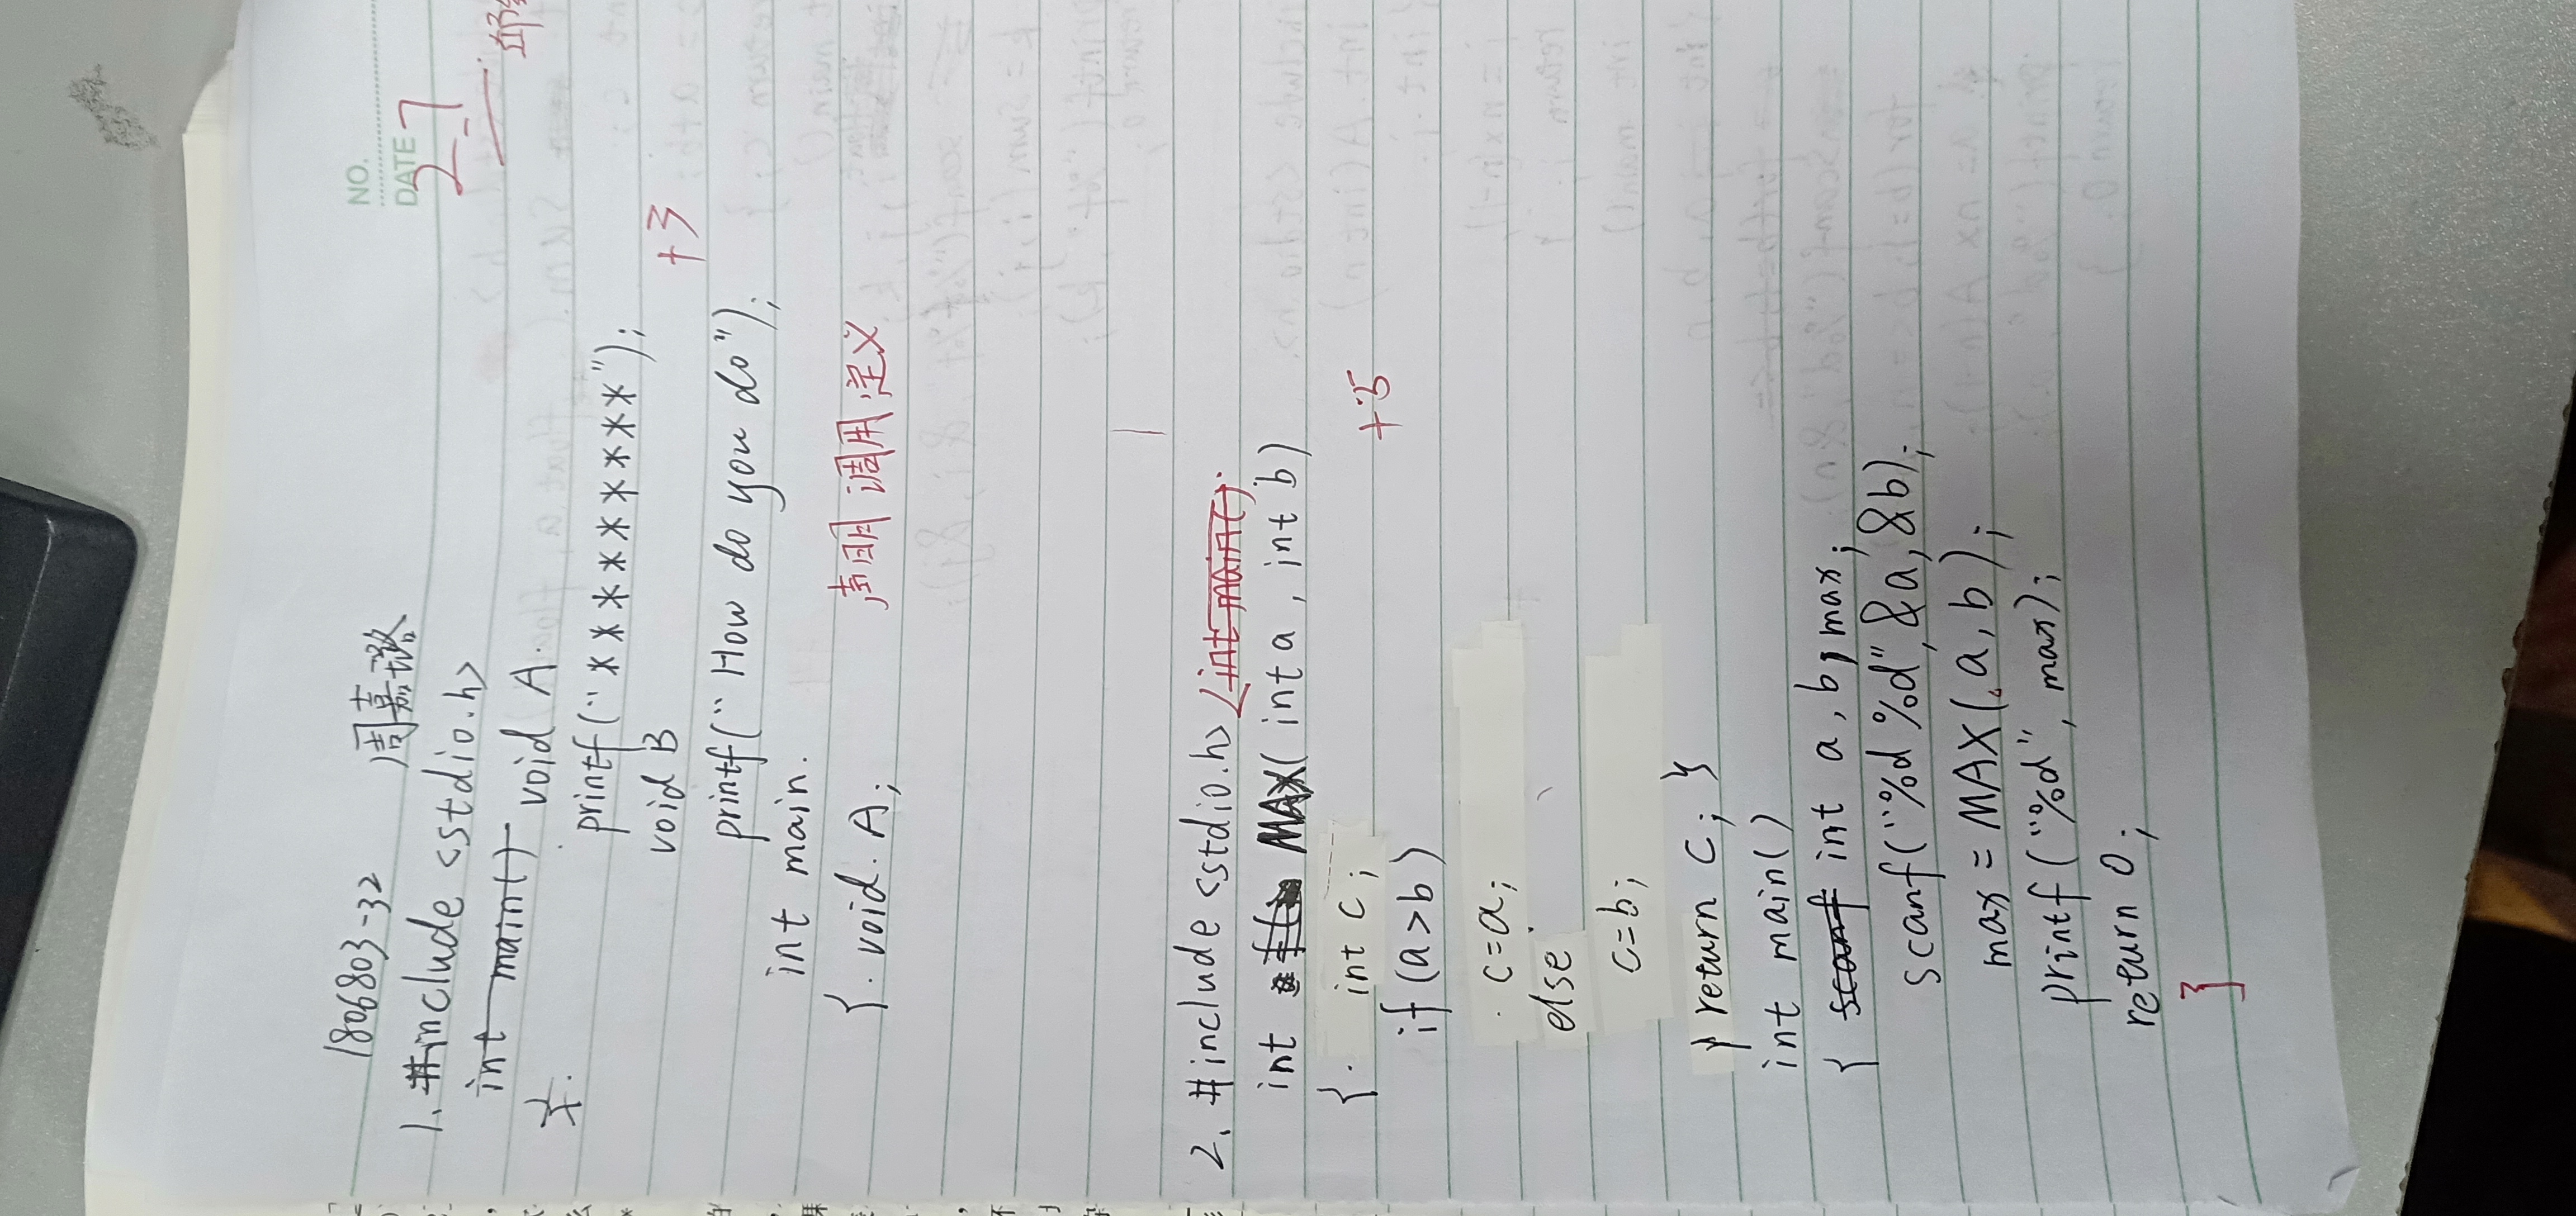 NO.
DATE
27
1806803-32 周嘉
1. #include <stdio.h>
int main() void A
printf("* * * * * * * *");
void B
+3
printf("How do you do");
int main.
{. void. A;
声明 调用 定义
2. #include <stdio.h> int main();
int MAX(int a, int b)
{. int c;
+5
if (a>b)
c=a;
else
c=b;
return c; }
int main()
{ scanf int a, b, max;
scanf("%d %d", &a, &b);
max = MAX(a, b);
printf("%d", max);
return 0;
}